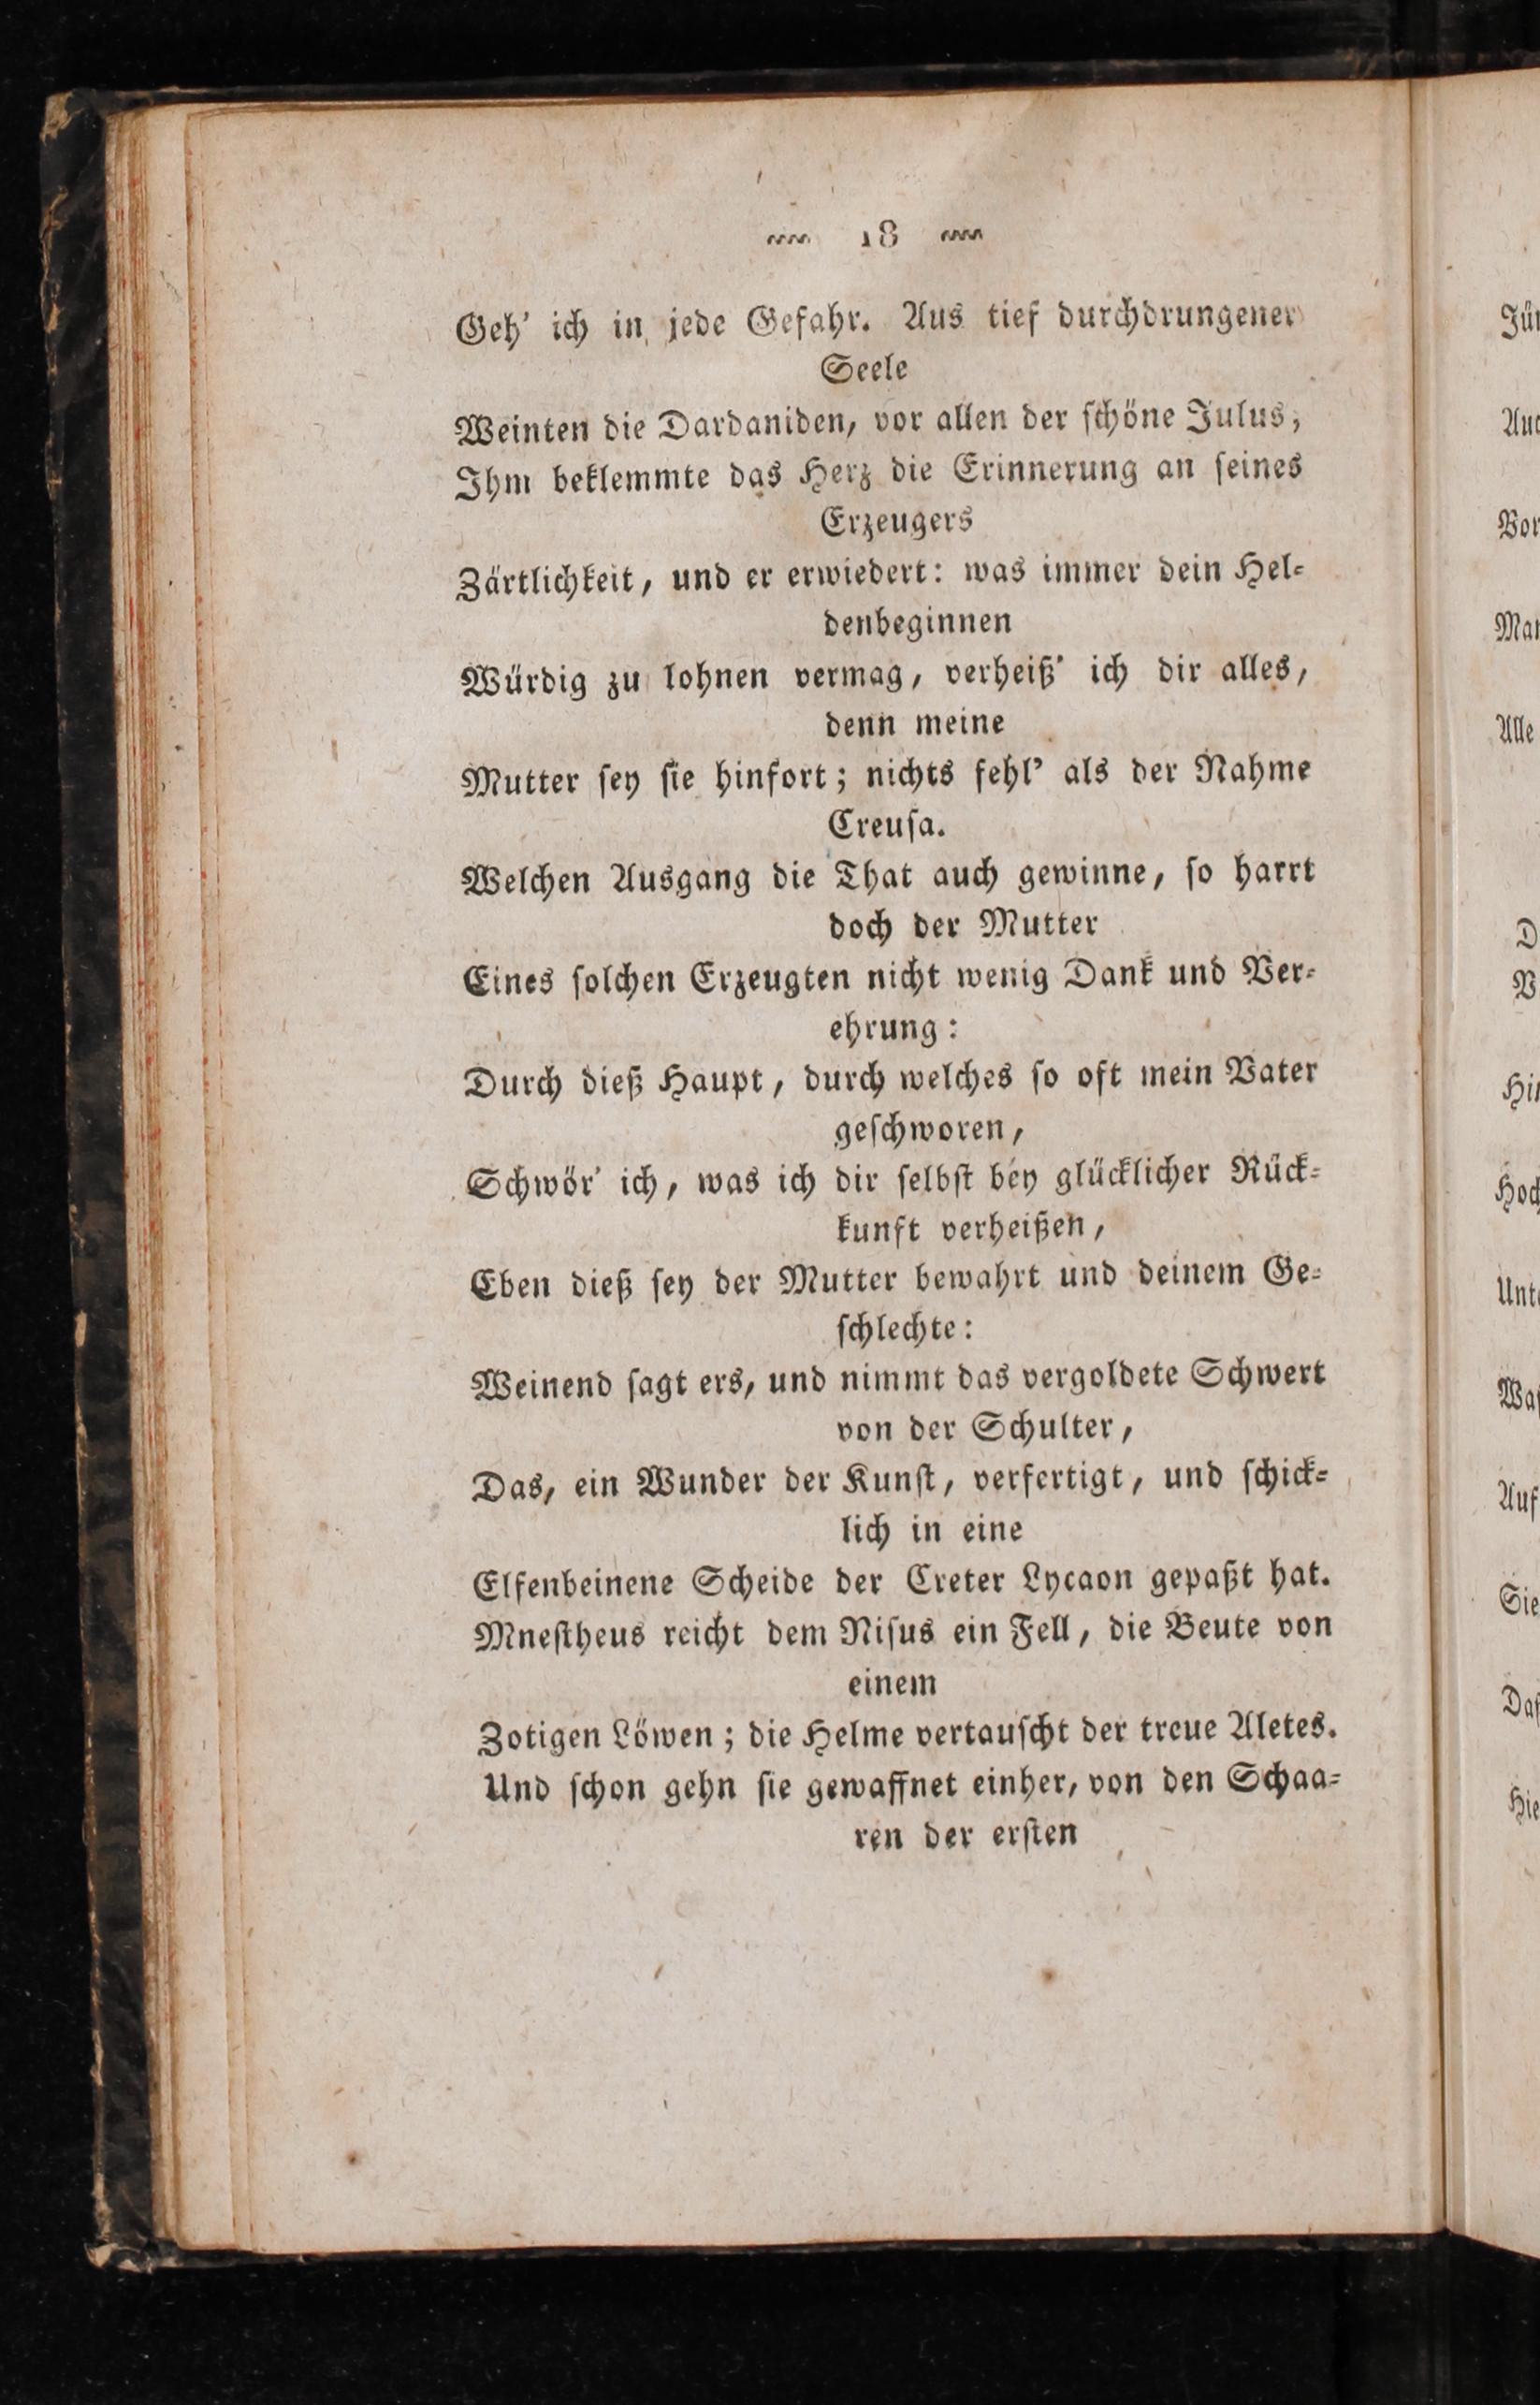 18
Geh' ich in jede Gefahr. Aus tief durchdrungener
Seele
Weinten die Dardaniden, vor allen der ſchöne Julus,
Ihm beklemmte das Herz die Erinnerung an ſeines
Erzeugers
Zärtlichkeit, und er erwiedert: was immer dein Hel-
denbeginnen
Würdig zu lohnen vermag, verheiß' ich dir alles,
denn meine
Mutter ſey ſie hinfort; nichts fehl' als der Nahme
Creuſa.
Welchen Ausgang die That auch gewinne, ſo harrt
doch der Mutter
Eines ſolchen Erzeugten nicht wenig Dank und Ver-
ehrung:
Durch dieß Haupt, durch welches ſo oft mein Vater
geſchworen,
Schwör' ich, was ich dir ſelbſt bey glücklicher Rück-
kunft verheißen,
Eben dieß ſey der Mutter bewahrt und deinem Ge-
ſchlechte:
Weinend ſagt ers, und nimmt das vergoldete Schwert
von der Schulter,
Das, ein Wunder der Kunſt, verfertigt, und ſchick-
lich in eine
Elfenbeinene Scheide der Creter Lycaon gepaßt hat.
Mneſtheus reicht dem Niſus ein Fell, die Beute von
einem
Zotigen Löwen; die Helme vertauſcht der treue Aletes.
Und ſchon gehn ſie gewaffnet einher, von den Schaa-
ren der erſten